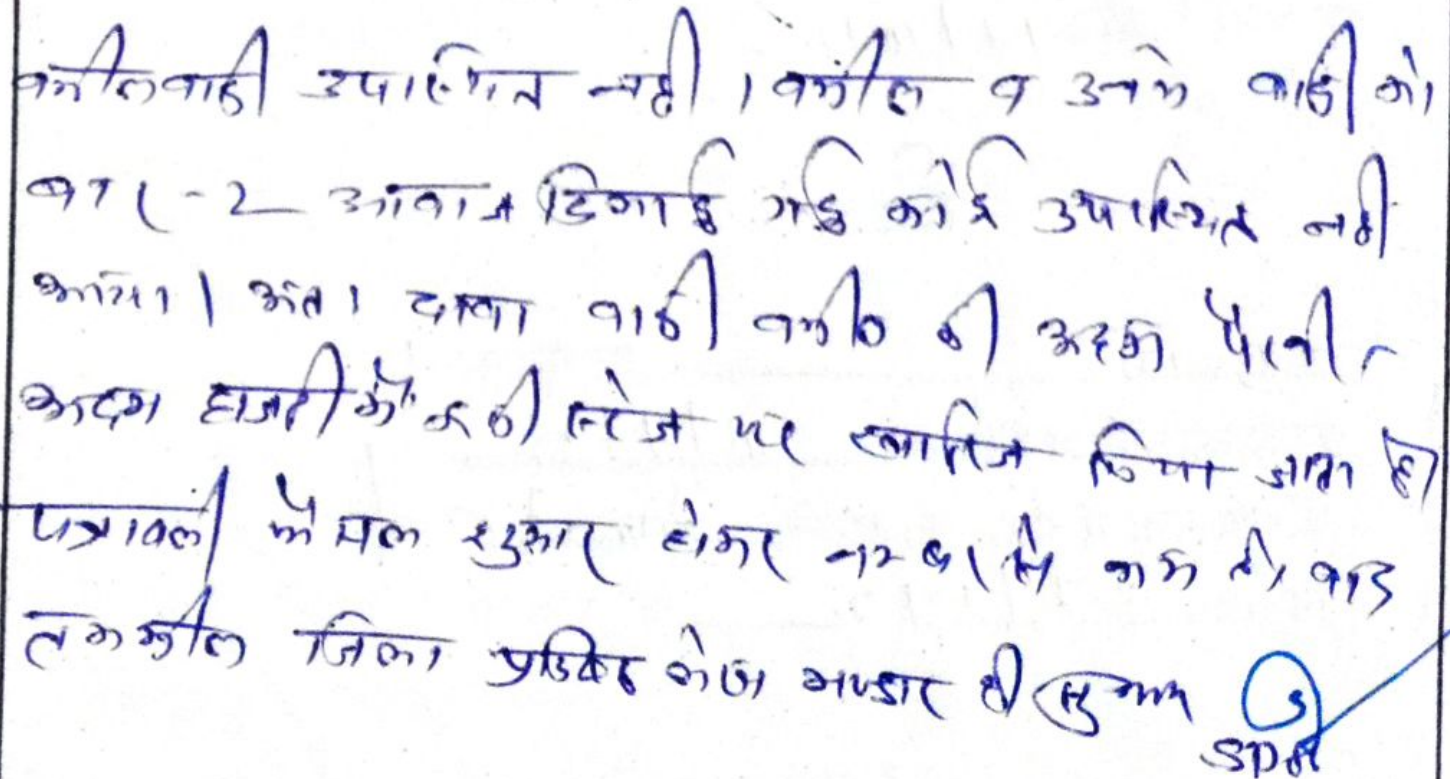 वकील वादी उपस्थित नही । वकील व उनके वादी को
बार-2 आवाज दिलाई गई कोई उपस्थित नही
आया। अतः दावा वादी वकील की अदम पैरवी,
अदम हाजरी में इसी स्टेज पर खारिज किया जाता है।
पत्रावली फैसल शुमार होकर नम्बर से कम हो, बाद
तकमील जिला अभिलेख भण्डार हो
SDM